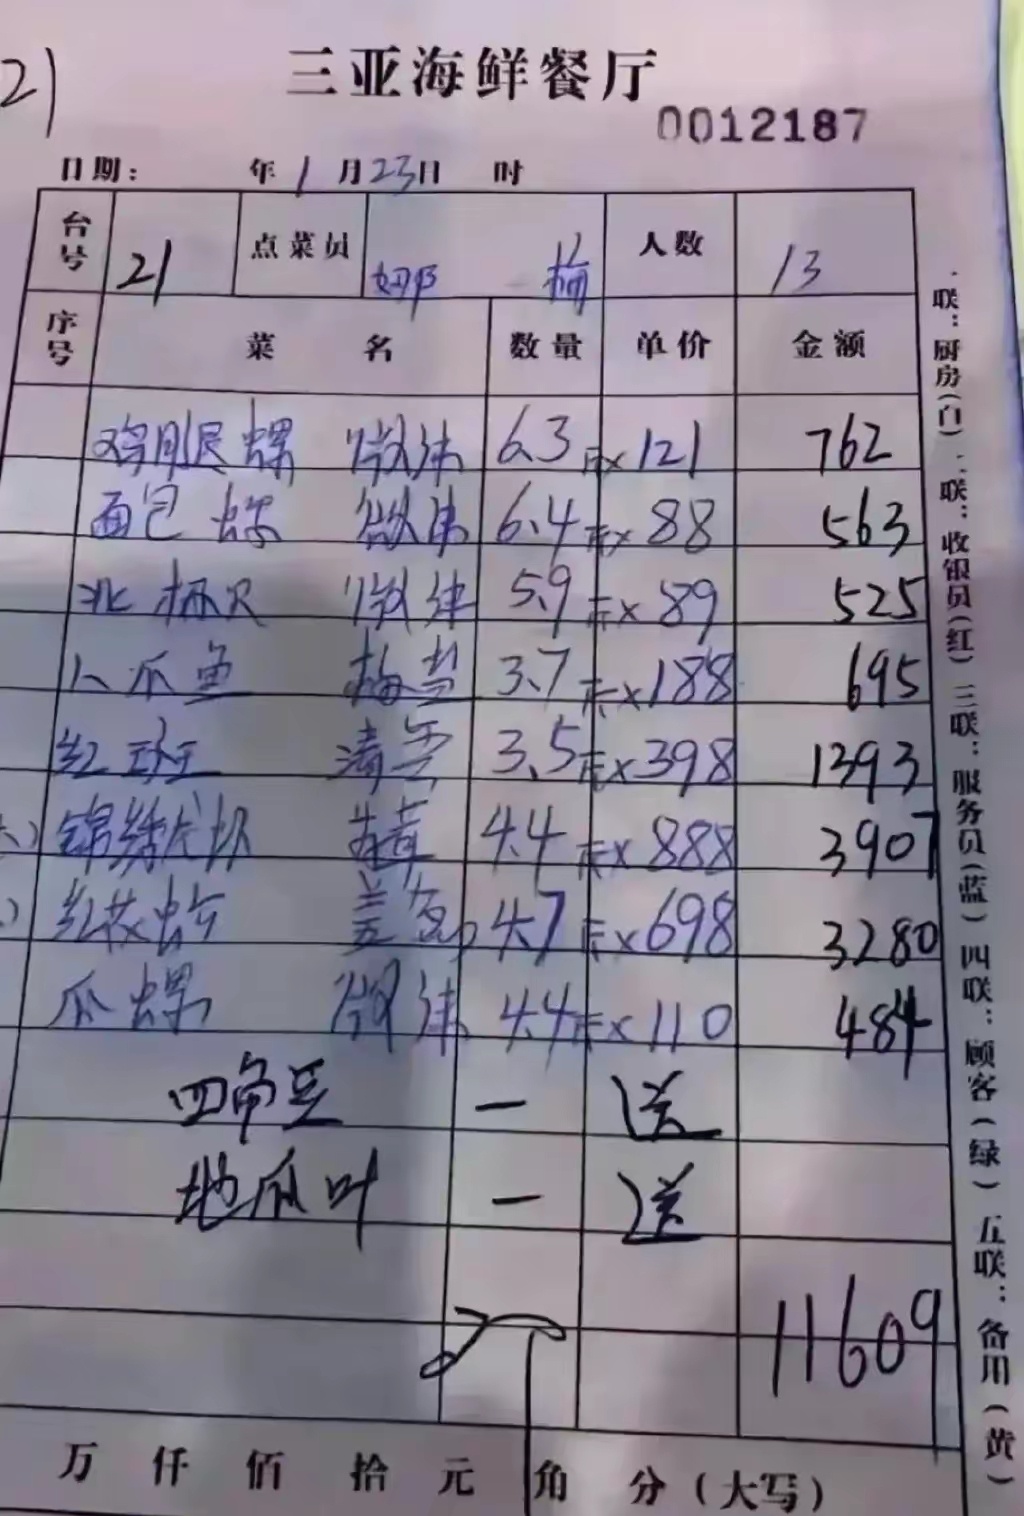 21
三亚海鲜餐厅
0012187
日期: 年1月23日 时
台号 21 点菜员 娜 梅 人数 13
序号 菜名 数量 单价 金额
鸡腿螺 微沫 6.3斤×121 762
面包螺 微沫 6.4斤×88 563
北极贝 微沫 5.9斤×89 525
八爪鱼 3.7斤×188 695
红斑 清蒸 3.5斤×398 1393
锦绣龙虾 4.4斤×888 3907
红花蚧 姜葱 4.7斤×698 3280
爪螺 微沫 4.4斤×110 484
四角豆 一 送
地瓜叶 一 送
11609
万仟佰拾元角分(大写)
一联:厨房(白) 二联:收银员(红) 三联:服务员(蓝) 四联:顾客(绿) 五联:备用(黄)